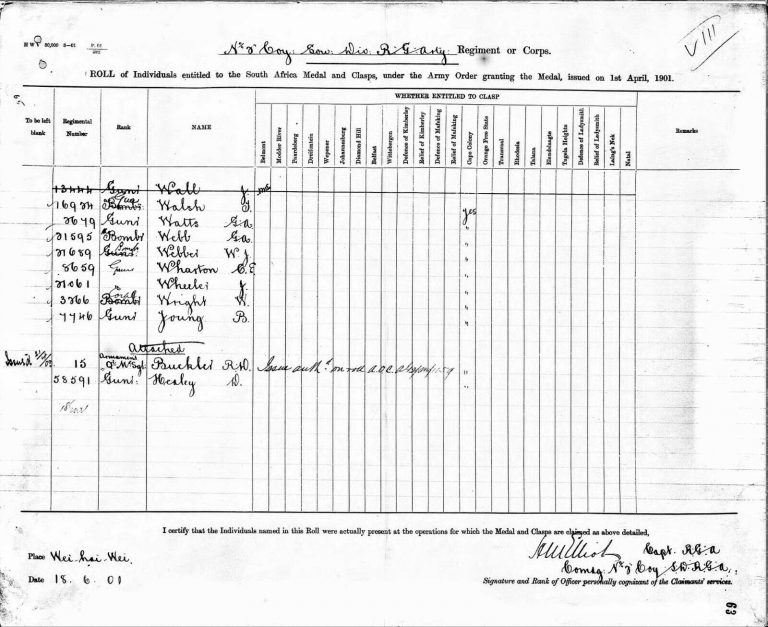 VIII
H W V 50,000 3-01
Coy: Sou. Div. R G Arty: Regiment or Corps.
ROLL of Individuals entitled to the South Africa Medal and Clasps, under the Army Order granting the Medal, issued on 1st April, 1901.
WHETHER ENTITLED TO CLASP
To be left blank Regimental Number Rank NAME Belmont Modder River Paardeberg Dreifontein Wepener Johannesburg Diamond Hill Belfast Wittebergen Defence of Kimberley Relief of Kimberley Defence of Mafeking Relief of Mafeking Cape Colony Orange Free State Transvaal Rhodesia Talana Elandslaagte Tugela Heights Defence of Ladysmith Relief of Ladysmith Laing's Nek Natal Remarks
13444 Gunr Wall J.
16934 Bombr Walsh T. yes
3679 Gunr Watts G.A. "
31595 Bombr Webb G.A. "
31689 Gunr Bombr Webber W.J. "
8659 Gunr Wharton C.E "
31061 " Wheeler J. "
3366 Bombr Corpl Wright W. "
7746 Gunr Young B. "
Attached
15 Armament Qr Mr Sgt Buckler R.D. Issue authd on roll A.O.C. "
58591 Gunr: Healey D. "
I certify that the Individuals named in this Roll were actually present at the operations for which the Medal and Clasps are claimed as above detailed,
Place Wei-hai-Wei
Capt. RGA
Date 18. 6. 01
Comdg: Coy S.D.R.G.A.
Signature and Rank of Officer personally cognizant of the Claimants' services.
63